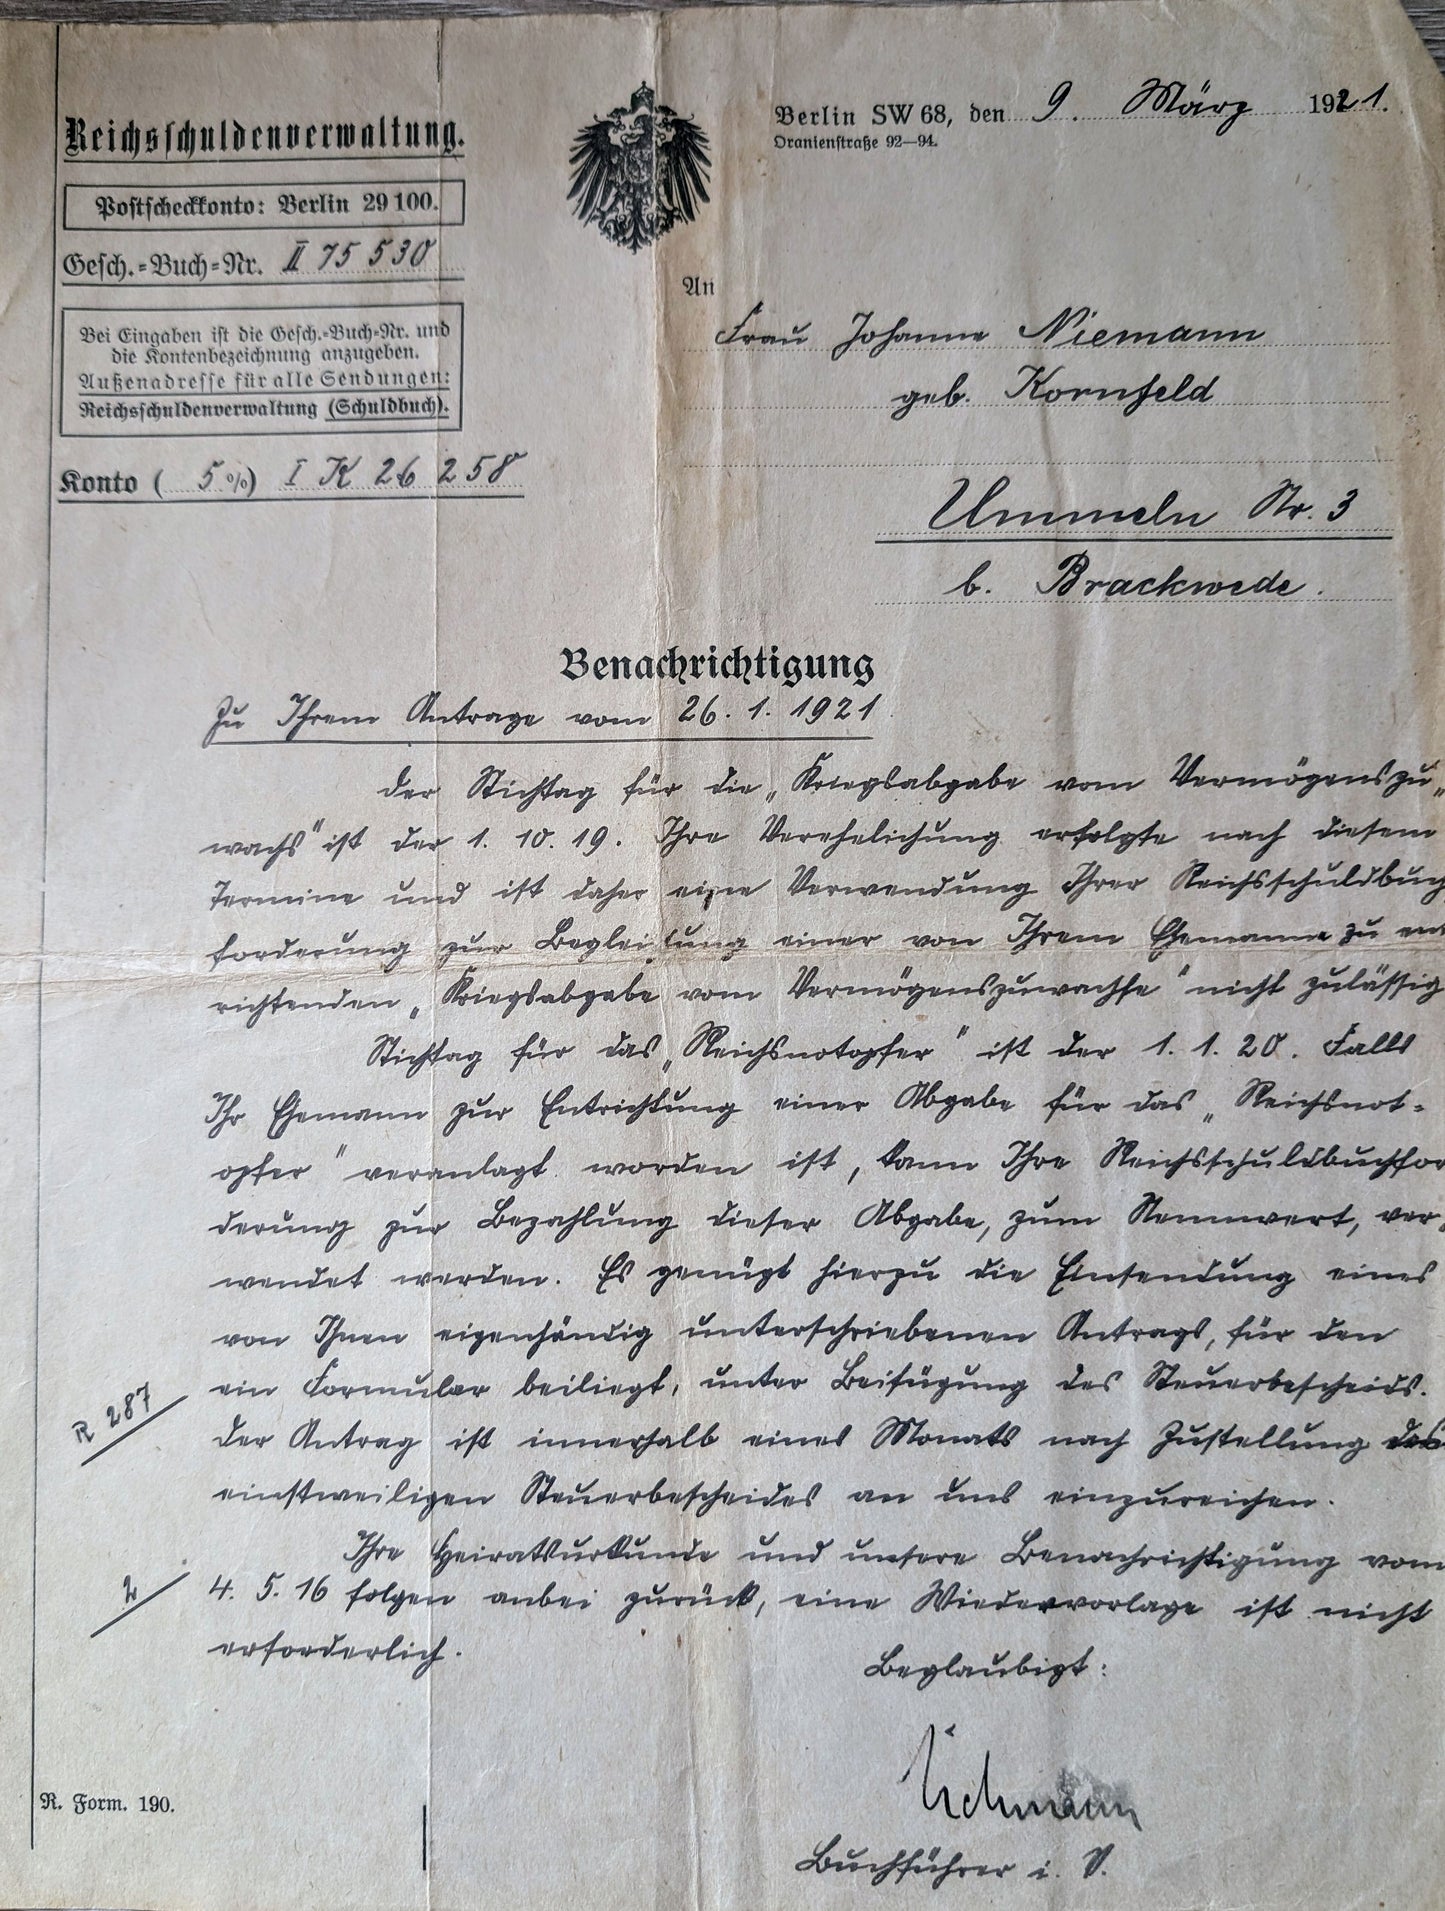 Reichsschuldenverwaltung.
Postscheckkonto: Berlin 29 100.
Gesch.=Buch=Nr. II 75 530
Bei Eingaben ist die Gesch.=Buch=Nr. und
die Kontenbezeichnung anzugeben.
Außenadresse für alle Sendungen:
Reichsschuldenverwaltung (Schuldbuch).
Konto ( 5 %) I K 26 258
Berlin SW 68, den 9. März 1921.
Oranienstraße 92—94.
An
Frau Johanne Niemann
geb. Kornfeld
Ummeln Nr. 3
b. Brackwede.
Benachrichtigung
Zu Ihrem Antrage vom 26. 1. 1921
Der Stichtag für die „Kriegsabgabe vom Vermögenszu„
wachs" ist der 1. 10. 19. Ihre Verehelichung erfolgte nach diesem
Termine und ist daher eine Verwendung Ihrer Reichsschuldbuch
forderung zur Begleitung einer von Ihrem Ehemanne zu ent
richtenden „Kriegsabgabe vom Vermögenszuwachse" nicht zulässig
Stichtag für das „Reichsnotopfer" ist der 1. 1. 20. Falls
Ihr Ehemann zur Entrichtung einer Abgabe für das „Reichsnot=
opfer" veranlagt worden ist, kann Ihre Reichsschuldbuchfor
derung zur Bezahlung dieser Abgabe, zum Nennwert, ver„
wendet werden. Es genügt hierzu die Einsendung eines
von Ihnen eigenhändig unterschriebenen Antrags, für den
ein Formular beiliegt, unter Beifügung des Steuerbescheids.
R 287
Der Antrag ist innerhalb eines Monats nach Zustellung des
einstweiligen Steuerbescheides an uns einzureichen.
Ihre Heiratsurkunde und unsere Benachrichtigung vom
2
4. 5. 16 folgen anbei zurück, eine Wiedervorlage ist nicht
erforderlich.
Beglaubigt:
Buchführer i. V.
R. Form. 190.